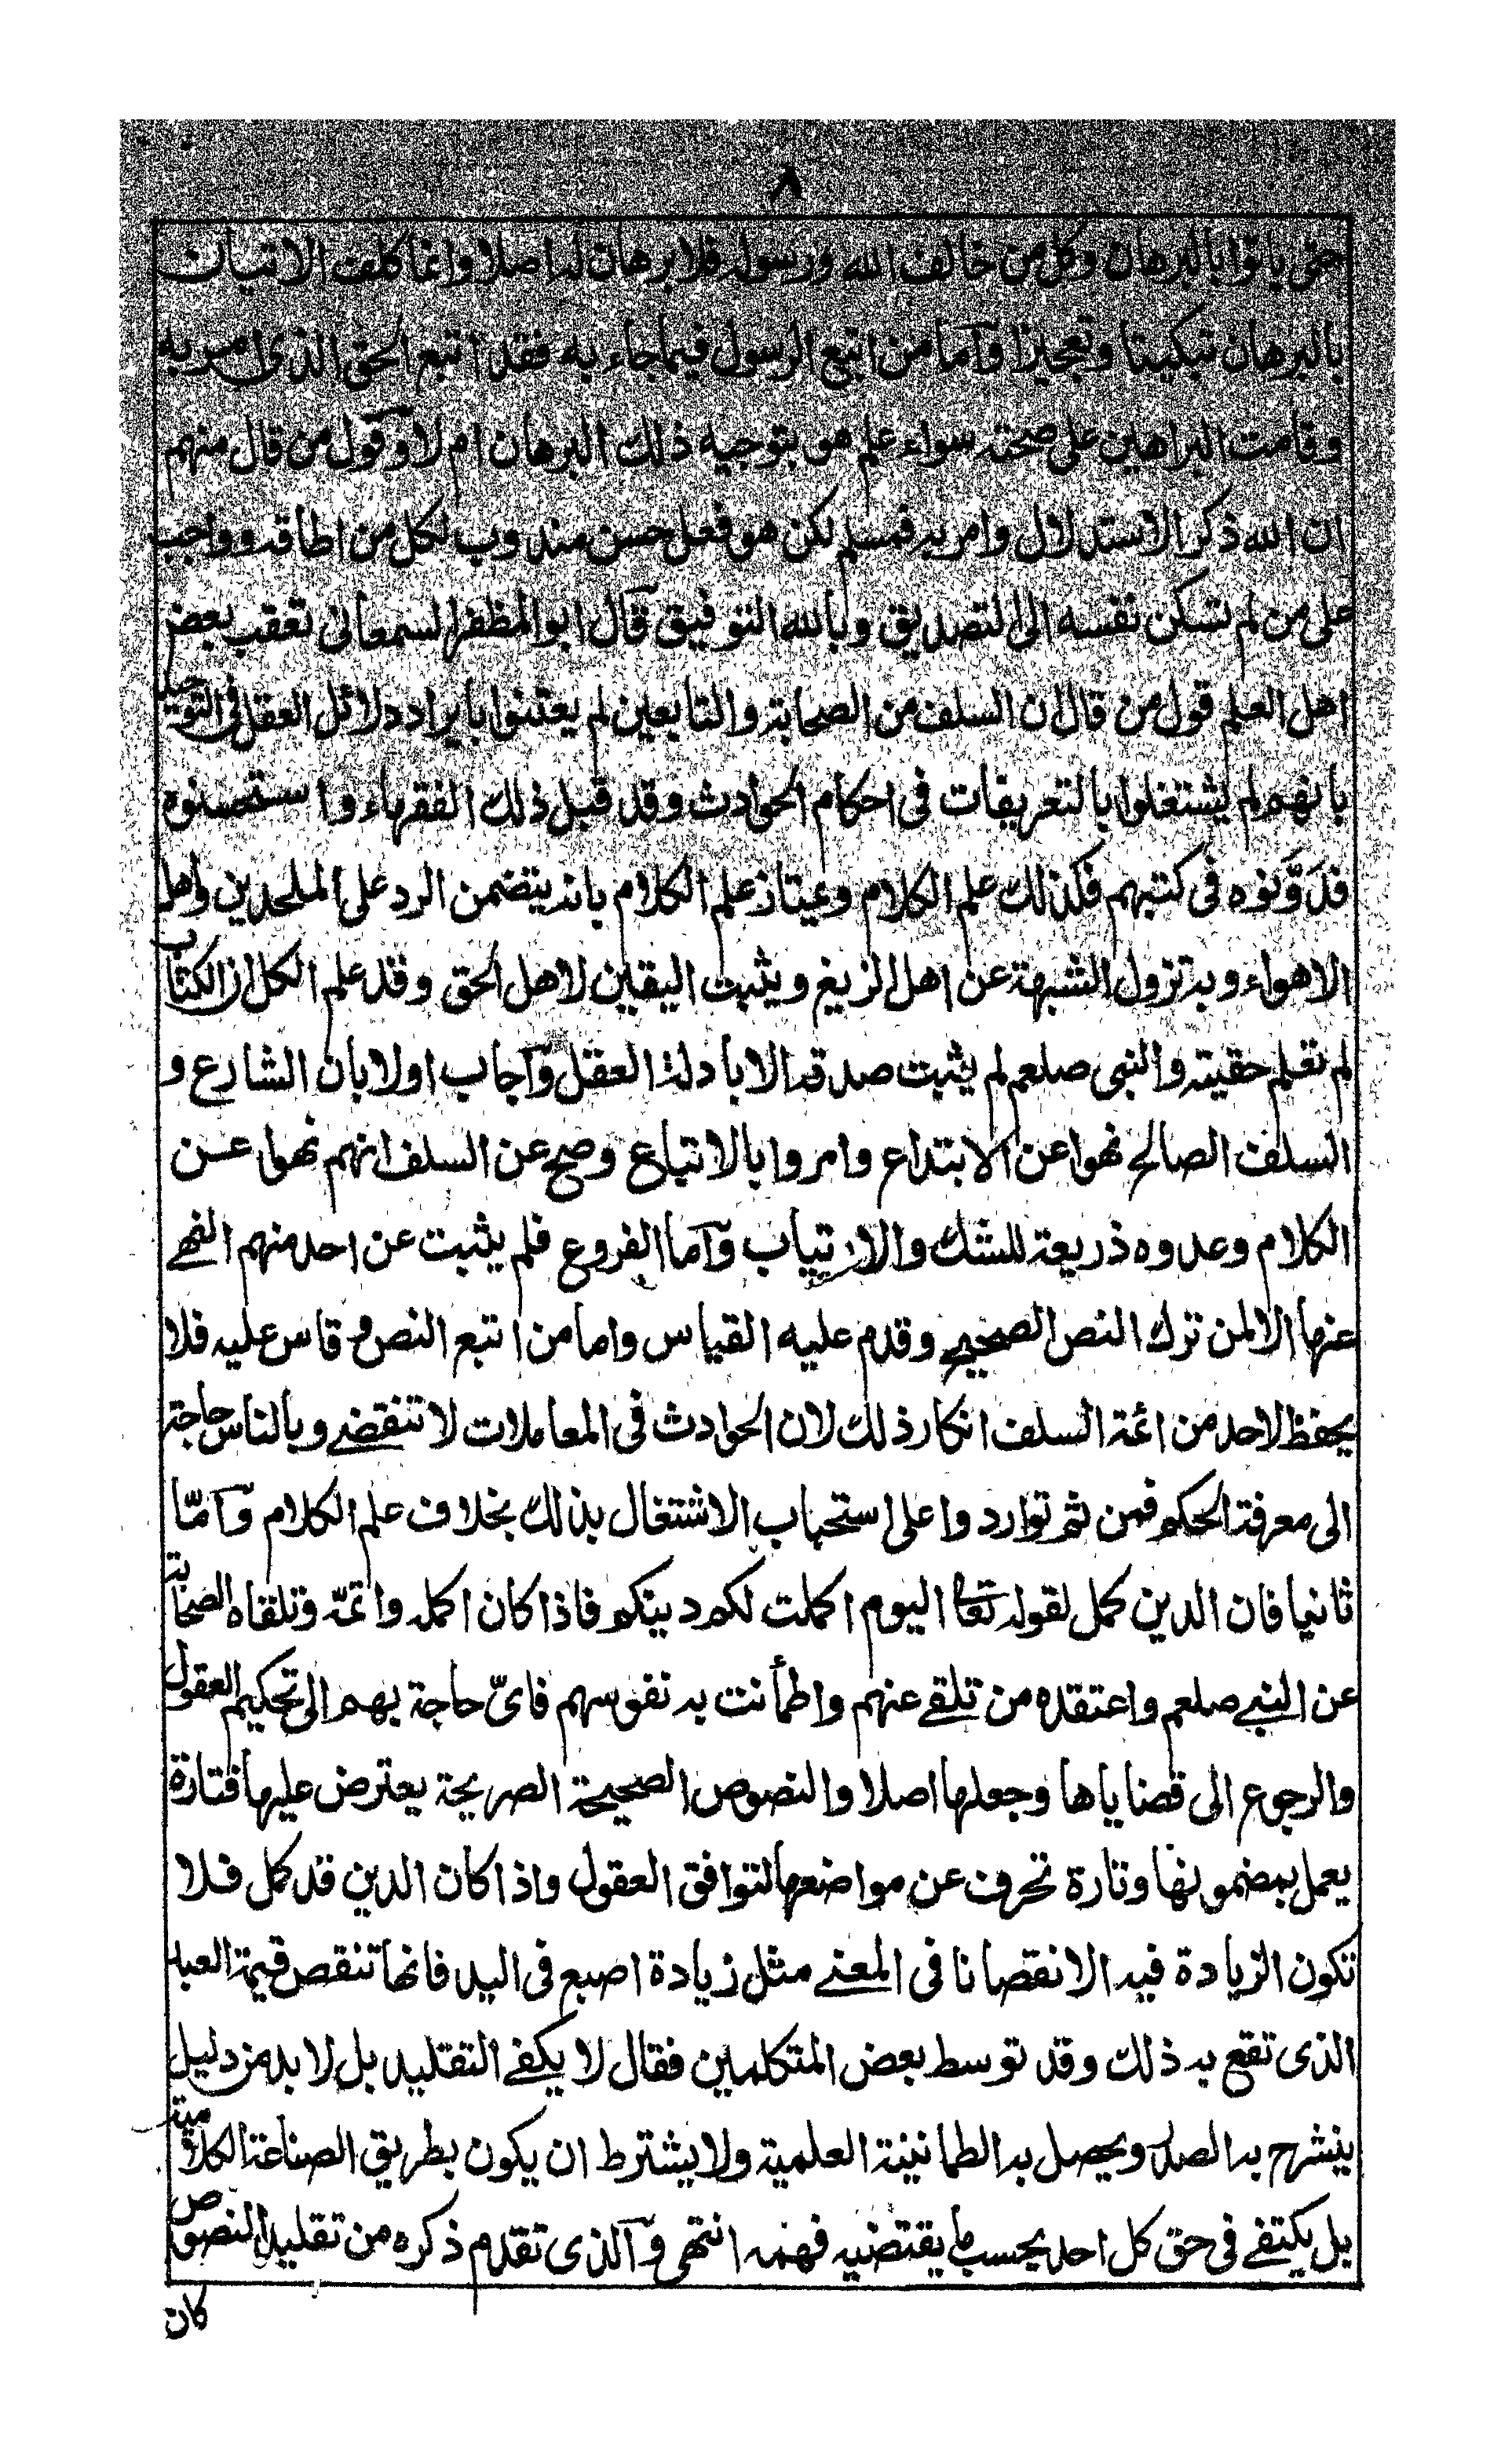 ٨
حتى ياتوا بالبرهان وكل من خالف الله ورسوله فلا برهان له اصلا وانما كلف الاتيان
بالبرهان تبكيتا وتعجيزا وآما من اتبع الرسول فيما جاء به فقد اتبع الحق الذى امر به
وقامت البراهين على صحته سواء علم هو بتوجيه ذلك البرهان ام لا وقول من قال منهم
ان الله ذكر الاستدلال وامر به فمسلم لكن هو فعل حسن مندوب لكل من اطاقه وواجب
على من لم تسكن نفسه الى التصديق وبالله التوفيق قال ابو المظفر السمعانى تعقب بعض
اهل العلم قول من قال ان السلف من الصحابة والتابعين لم يعتنوا بايراد دلائل العقل فى التوحيد
بانهم لم يشتغلوا بالتعريفات فى احكام الحوادث وقد قبل ذلك الفقهاء واستحسنوه
فدوّنوه فى كتبهم فكذلك علم الكلام ويمتاز علم الكلام بانه يتضمن الرد على الملحدين واهل
الاهواء وبه تزول الشبهة عن اهل الزيغ ويثبت اليقين لاهل الحق وقد علم الكل ان الكتاب
لم تعلم حقيته والنبى صلعم لم يثبت صدقه الا بادلة العقل وآجاب اولا بان الشارع و
السلف الصالح نهوا عن الابتداع وامروا بالاتباع وصح عن السلف انهم نهوا عن
الكلام وعدوه ذريعة للشك والارتياب وآما الفروع فلم يثبت عن احد منهم النهے
عنها الا لمن ترك النص الصحيح وقدم عليه القياس واما من اتبع النص وقاس عليه فلا
يحفظ لاحد من ائمة السلف انكار ذلك لان الحوادث فى المعاملات لا تنقضے وبالناس حاجة
الى معرفة الحكم فمن ثم تواردوا على استحباب الاشتغال بذلك بخلاف علم الكلام وآمّا
ثانيا فان الدين كمل لقوله تعا اليوم اكملت لكم دينكم فاذا كان اكمله واتمّه وتلقاه الصحابة
عن النبے صلعم واعتقده من تلقے عنهم واطمأنت به نفوسهم فاىّ حاجة بهم الى تحكيم العقول
والرجوع الى قضاياها وجعلها اصلا والنصوص الصحيحة الصريحة يعترض عليها فتارة
يعمل بمضمونها وتارة تحرف عن مواضعها لتوافق العقول واذا كان الدين قد كمل فلا
تكون الزيادة فيه الا نقصانا فى المعنے مثل زيادة اصبع فى اليد فانها تنقص قيمة العبد
الذى تقع به ذلك وقد توسط بعض المتكلمين فقال لا يكفے التقليد بل لا بد من دليل
ينشرح به الصدر ويحصل به الطمانينة العلمية ولا يشترط ان يكون بطريق الصناعة الكلامية
بل يكتفے فى حق كل احد بحسب ما يقتضيه فهمه انتهى وآلذى تقدم ذكره من تقليد النصوص
كان